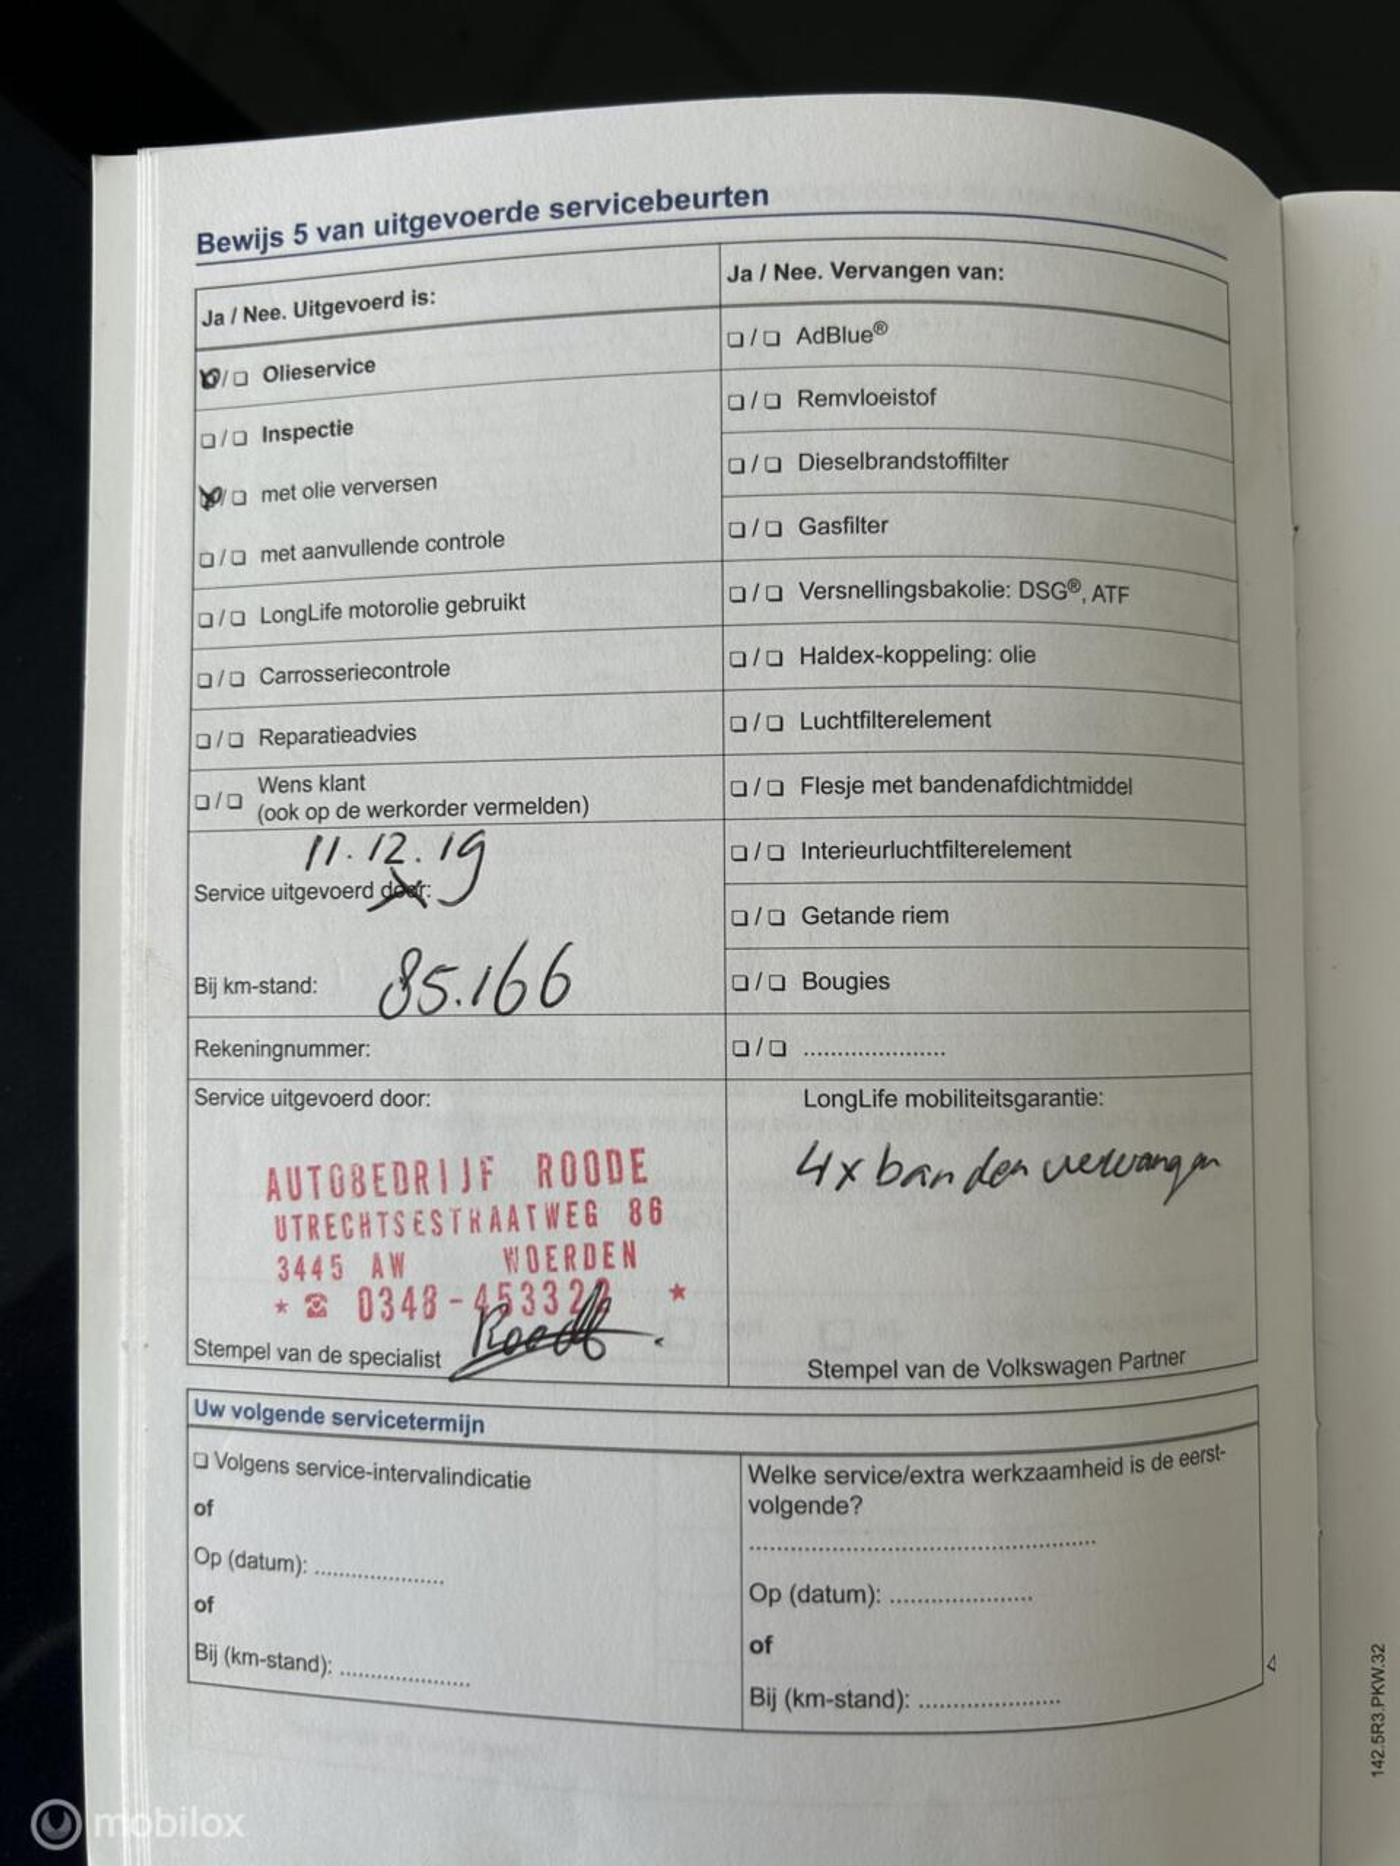 Bewijs 5 van uitgevoerde servicebeurten
Ja / Nee. Uitgevoerd is:
❏/❏ Olieservice
❏/❏ Inspectie
❏/❏ met olie verversen
❏/❏ met aanvullende controle
❏/❏ LongLife motorolie gebruikt
❏/❏ Carrosseriecontrole
❏/❏ Reparatieadvies
❏/❏ Wens klant
(ook op de werkorder vermelden)
11.12.19
Service uitgevoerd door:
Bij km-stand: 85.166
Rekeningnummer:
Ja / Nee. Vervangen van:
❏/❏ AdBlue®
❏/❏ Remvloeistof
❏/❏ Dieselbrandstoffilter
❏/❏ Gasfilter
❏/❏ Versnellingsbakolie: DSG®, ATF
❏/❏ Haldex-koppeling: olie
❏/❏ Luchtfilterelement
❏/❏ Flesje met bandenafdichtmiddel
❏/❏ Interieurluchtfilterelement
❏/❏ Getande riem
❏/❏ Bougies
❏/❏ ......................
Service uitgevoerd door:
AUTOBEDRIJF ROODE
UTRECHTSESTRAATWEG 86
3445 AW WOERDEN
* ☎ 0348-453322 *
Roode
Stempel van de specialist
LongLife mobiliteitsgarantie:
4x banden vervangen
Stempel van de Volkswagen Partner
Uw volgende servicetermijn
❏ Volgens service-intervalindicatie
of
Op (datum): ....................
of
Bij (km-stand): ....................
Welke service/extra werkzaamheid is de eerst-
volgende?
......................................................
Op (datum): ......................
of
Bij (km-stand): ......................
142.5R3.PKW.32
mobilox